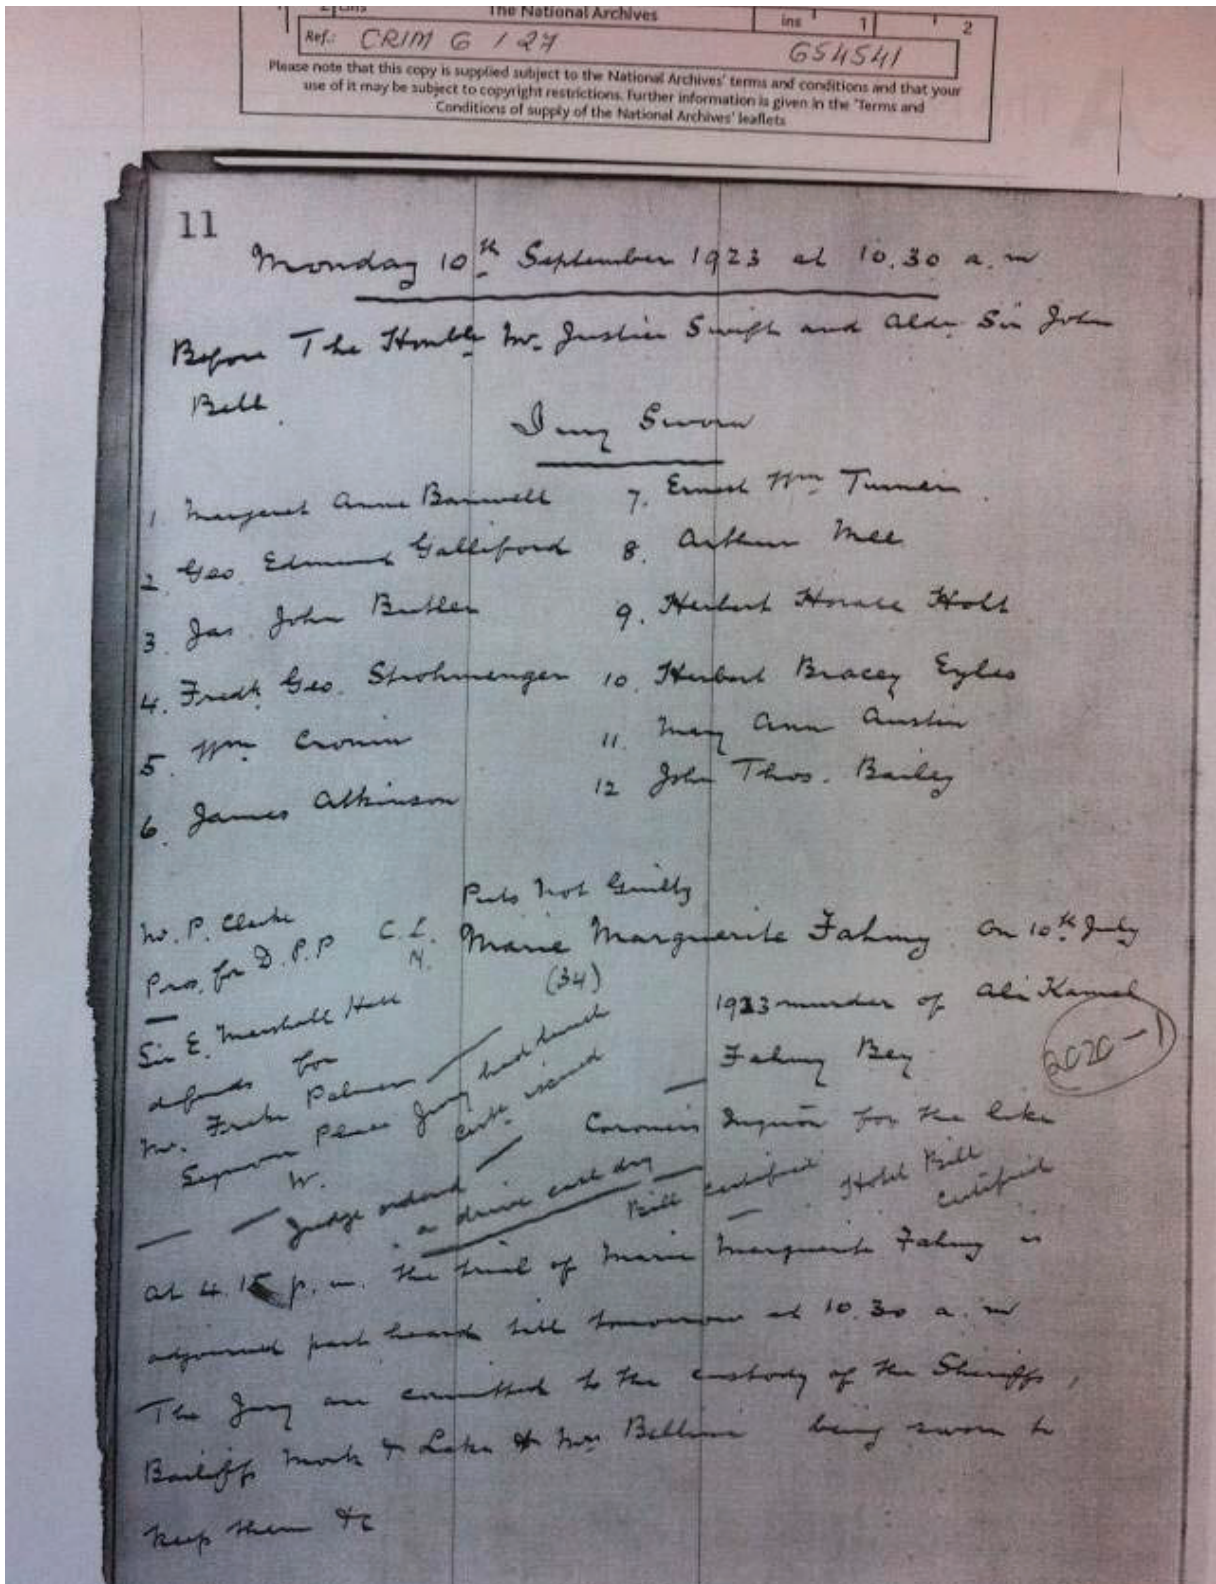 The National Archives
ins 1 2
Ref.: CRIM 6 / 27
654541
Please note that this copy is supplied subject to the National Archives' terms and conditions and that your
use of it may be subject to copyright restrictions. Further information is given in the 'Terms and
Conditions of supply of the National Archives' leaflets
11
Monday 10th September 1923 at 10.30 a.m
Before The Honble Mr. Justice Swift and Aldn Sir John
Bell.
Jury Sworn
1 Margaret Anne Banwell
2 Geo. Edmund Galliford
3 Jas. John Butler
4. Fredk Geo. Strohmenger
5. Wm Cronin
6. James Atkinson
7. Ernest Wm Turner.
8. Arthur Mee
9. Herbert Horace Holt
10. Herbert Bracey Eyles
11. Mary Ann Austin
12 John Thos. Bailey
Mr. P. Clarke
Pros. for D.P.P
Sir E. Marshall Hall
defends for
Mr. Freke Palmer
Seymour Place
W.
C.C.
Puts Not Guilty
Marie Marguerite Fahmy On 10th July
(34)
1923 murder of Ali Kamel
Fahmy Bey
2020-1
Coroner's for the like
Jury had lunch
Judge ordered
a drive each day
Bill certified
Hotel Bill
certified
At 4.15 p.m. the trial of Marie Marguerite Fahmy is
adjourned part heard till tomorrow at 10.30 a.m
The Jury are committed to the custody of the Sheriffs,
Bailiffs & Lake & Mrs being sworn to
keep them &c